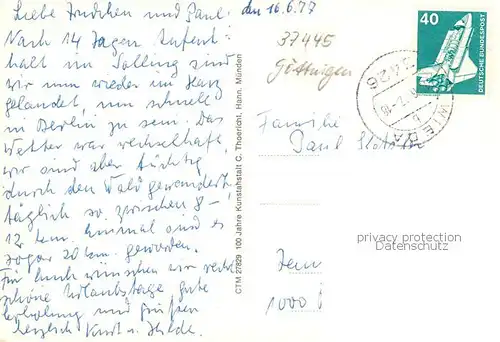 Liebe Trudchen und Paul!
Nach 14 Tagen Aufent-
halt im Solling sind
wir nun wieder im Harz
gelandet, um schnell
in Berlin zu sein. Das
Wetter war wechselhaft,
wir sind aber tüchtig
durch den Wald gewandert,
täglich so zwischen 8-
12 km. Einmal sind es
sogar 20 km. geworden.
Für Euch wünschen wir recht
schöne Urlaubstage gute
Erholung und grüssen
herzlich Kurt u. Hilde.
CTM 2/829 100 Jahre Kunstanstalt C. Thoericht, Hann. Münden
den 16.6.77
37445
Göttingen
40
DEUTSCHE BUNDESPOST
3426
WIEDA
Familie
Paul
privacy protection
Datenschutz
1000